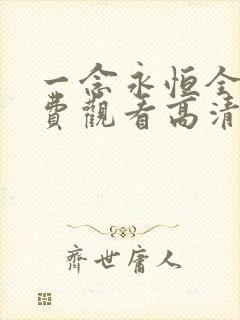 一念永恒全
費觀看高清
齊世庸人